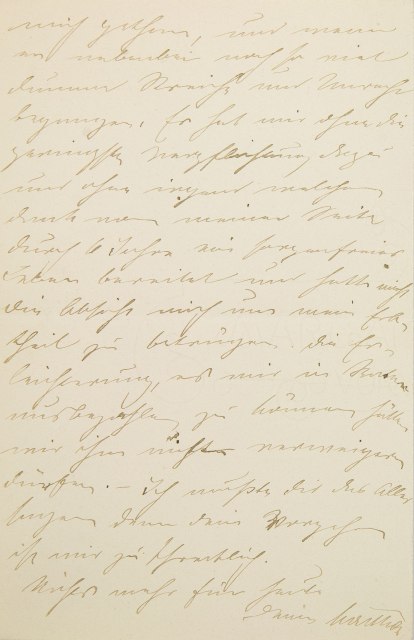 mich gethan, und wenn
er nebenbei noch so viel
dumme Streiche und Unrecht
begangen. Er hat mir ohne die
geringste Verpflichtung dazu
und ohne irgend welchen
dank von meiner Seite
durch 6 Jahre ein sorgenfreies
Leben bereitet und hatte nicht
die Absicht mich um mein Erb-
theil zu betrügen. die Er-
leichterung, es mir in
ausbezahlen zu können hätte
wir ihm nicht verweigern
dürfen. – Ich mußte dir das Alles
sagen denn dein
ist mir zu schrecklich.
Nichts mehr für heute
Deine